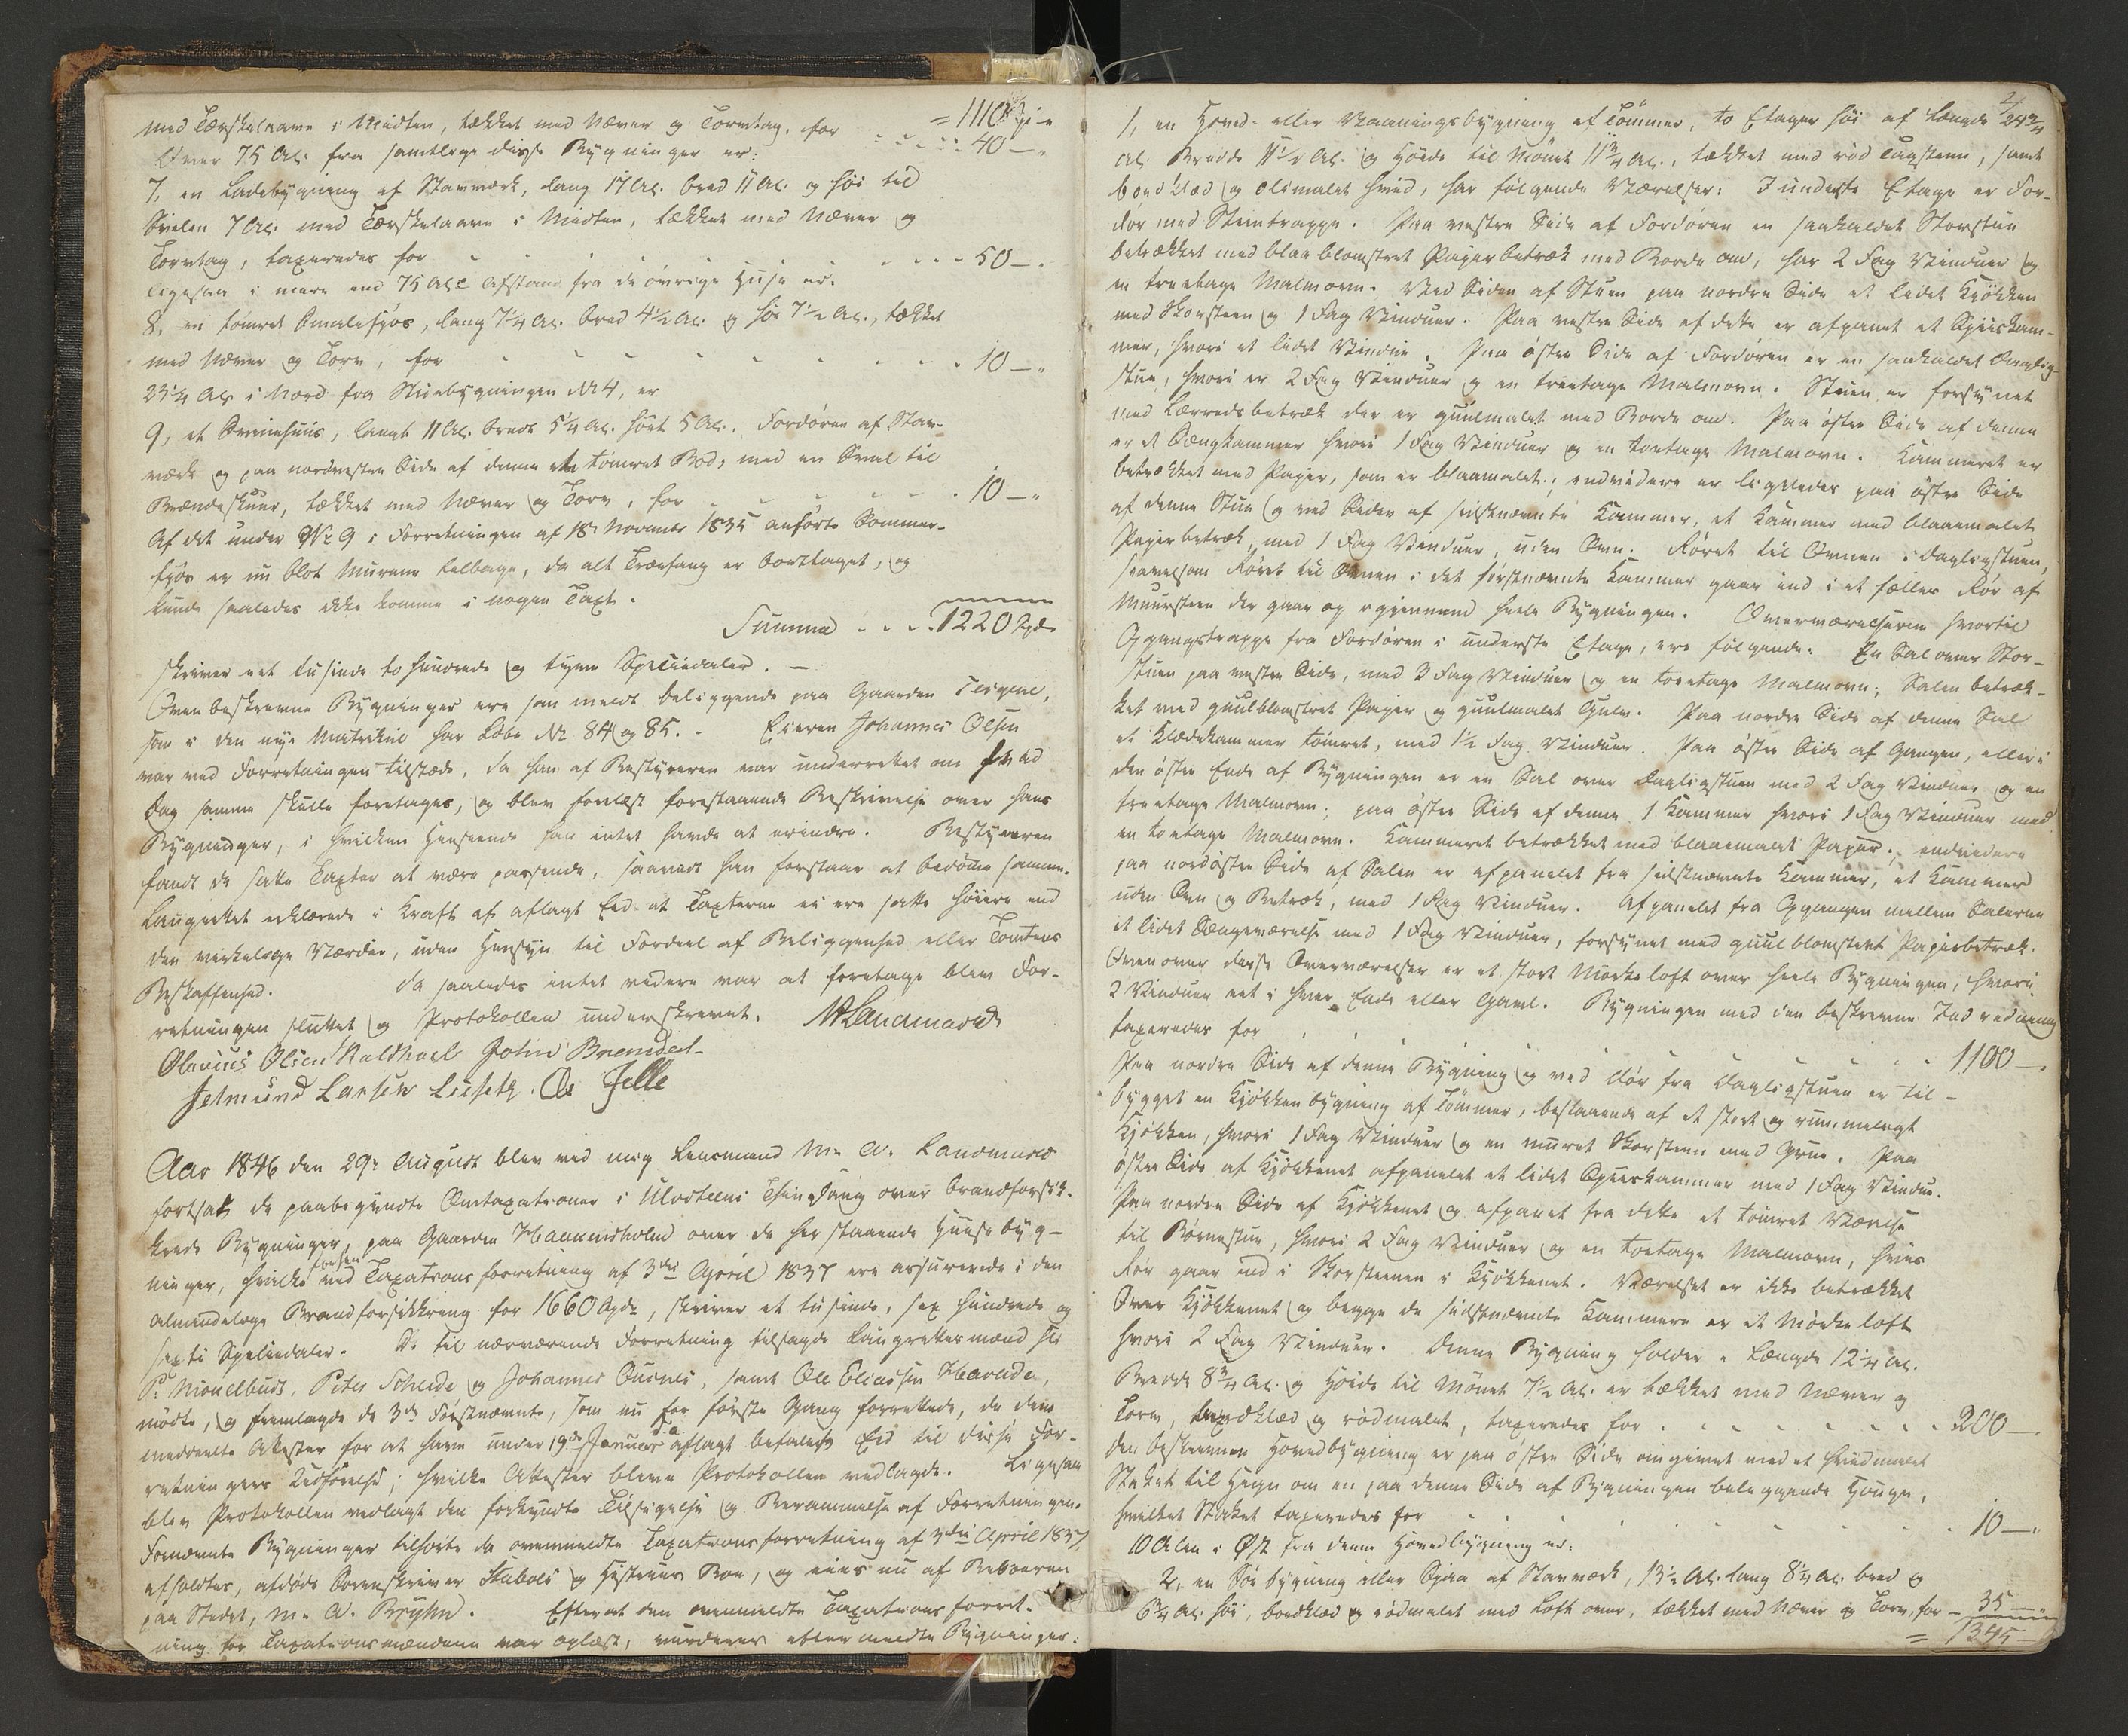 med Tærskelaave i Midten, tækket med Næver og Torvtag, for = 1110
Over 75 Al. fra samtlige disse Bygninger er: 40 —
7, en Ladebygning af Stavværk, lang 17 Al. bred 11 Al. og høi til
Svilen 7 Al. med Tærskelaave i Midten, tækket med Næver og
Torvtag, taxeredes for 50 —
ligesaa i mere end 75 Al. Afstand fra de øvrige Huse er:
8, en tømret Smalefjøs, lang 7¼ Al. bred 4½ Al. og høi 7½ Al., tækket
med Næver og Torv, for 10 —
23¼ Al. i Nord fra Stuebygningen № 4, er
9, et Qværnhuus, langt 11 Al. bredt 5¼ Al. høit 5 Al. Fordøren af Stav-
værk og paa nordvestre Side af denne en tømret Bod, med en Sval til
Brændeskuur, tækket med Næver og Torv, for 10 —
Af det under № 9 i Forretningen af 18. November 1835 anførte Sommer-
fjøs er nu blot Murene tilbage, da alt Træfang er borttaget, og
kunde saaledes ikke komme i nogen Taxt.
Summa 1220 Spd.
skriver eet tusinde to hundrede og tyve Speciedaler. —
Ovenbeskrevne Bygninger ere som meldt beliggende paa Gaarden Teigene,
som i den nye Matrikul har Løbe № 84 og 85. - Eieren Johannes Olsen
var ved Forretningen tilstæde, da han af Bestyreren var underrettet om hvad
Dag samme skulle foretages, og blev forelæst forestaaende Beskrivelse over hans
Bygninger, i hvilken Henseende han intet havde at erindre. Bestyreren
fandt de satte Taxter at være passende, saavidt han forstaar at bedømme samme.
Laugrettet erklærede i Kraft af aflagt Eed at Taxterne ei ere satte høiere end
den virkelige Værdie, uden Hensyn til Fordeel af Beliggenhed eller Tomtens
Beskaffenhed. Da saaledes intet videre var at foretage blev For-
retningen sluttet og Protokollen underskrevet. M A Landmark
Olavius Olsen Raldhael John Brendal
Jetmund Larsen Lilseth. Ole Jelle
Aar 1846 den 29. August blev ved mig Lensmand M. A. Landmark
fortsat de paabegyndte Omtaxationer i Thinglaug over brandforsik-
krede Bygninger, paa Gaarden Haamsholm over de her staaende Huusebyg-
ninger, hvilke ved Taxationsforretning af 3die April 1837 ere assurerede i den
almindelige Brandforsikkring for 1660 Spd., skriver et tusinde, sex hundrede og
sexti Speciedaler. De til nærværende Forretning tilsagde Laugrettesmænd
P. Mouelbust, Peter Scheide og Johannes Ousnes, samt Ole Eliassen Hareide,
mødte, og fremlagde de 3de Førstnævnte, som nu for første Gang forrettede, de dem
meddeelte Attester for at have under 19de Januar d. A. aflagt befalet Eed til disse For-
retningers Udførelse; hvilke Attester bleve Protokollen vedlagde. Ligesaa
blev Protokollen vedlagt den forkyndte Tilsigelse og Berammelse af Forretningen.
Fornævnte Bygninger tilhørte da ovenmeldte Taxationsforretning af 3die April 1837
afholdtes, afdøde Sorenskriver Stabels og Hustrues Boe, og eies nu af Beboeren
paa Stedet, M. A. Bryhn. Efterat den ovenmeldte Taxationsforret-
ning for Taxationsmændene var oplæst, vurderes eftermeldte Bygninger:
2
1, en Hoved- eller Vaaningsbygning af Tømmer, to Etager høi af Længde 24¾
Al. Bredde 11½ Al. og Høide til Mønet 11¾ Al., tækket med rød Tagsteen, samt
bordklæd og oliemalet hvid, har følgende Værelser: I underste Etage er For-
dør med Steentrappe. Paa vestre Side af Fordøren en saakaldet Storstue
betrækket med blaablomstret Papirbetræk med Borde om, har 2 Fag Vinduer og
en treetages Malmovn. Ved Siden af Stuen paa nordre Side et lidet Kjøkken
med Skorsteen og 1 Fag Vinduer. Paa vestre Side af dette er afpanet et Spiiskam-
mer, hvori et lidet Vindue. Paa østre Side af Fordøren er en saakaldet Daglig-
stue, hvori er 2 Fag Vinduer og en treetages Malmovn. Stuen er forsynet
med Lærredsbetræk der er guulmalet med Borde om. Paa østre Side af denne
er et Sængkammer hvori 1 Fag Vinduer og en toetages Malmovn. Kammeret er
betrækket med Papir, som er blaamalet; endvidere er ligeledes paa østre Side
af denne Stue og ved Siden af sidstnævnte Kammer, et Kammer med blaaemalet
Papirbetræk, med 1 Fag Vinduer, uden Ovn. Røret til Ovnen i Dagligstuen,
saavelsom Røret til Ovnen i det førstnævnte Kammer gaar ind i et fælles Rør af
Muursteen der gaar op igjennem heele Bygningen. Overværelserne hvortil
Opgangstrappe fra Fordøren i underste Etage, ere følgende: En Sal over Stor-
stuen paa vestre Side, med 3 Fag Vinduer og en toetages Malmovn; Salen betræk-
ket med guulblomstret Papir og guulmalet Gulv. Paa nordre Side af denne Sal
et Klædekammer tømret, med 1½ Fag Vinduer. Paa østre Side af Gangen, eller i
den østre Ende af Bygningen er en Sal over Dagligstuen med 2 Fag Vinduer og en
treetages Malmovn; paa østre Side af denne 1 Kammer hvori 1 Fag Vinduer med
en toetages Malmovn. Kammeret betrækket med blaaemalet Papir; endvidere
paa nordøstre Side af Salen er afpanelet fra sidstnævnte Kammer, et Kammer
uden Ovn og Betræk, med 1 Fag Vinduer. Afpanelet fra Opgangen mellem Salerne
et lidet Sængeværelse med 1 Fag Vinduer, forsynet med guulblomstret Papirbetræk.
Ovenover disse Overværelser er et stort Mørkeloft over heele Bygningen, hvori
2 Vinduer eet i hver Ende eller Gavl. Bygningen med den beskrevne Indredning
taxeredes for 1100 —
Paa nordre Side af denne Bygning og ved Dør fra Dagligstuen er til-
bygget en Kjøkkenbygning af Tømmer, bestaaende af et stort og rummeligt
Kjøkken, hvori 1 Fag Vinduer og en muret Skorsteen med Grue. Paa
østre Side af Kjøkkenet afpanelet et lidet Spiiskammer med 1 Fag Vindue.
Paa nordre Side af Kjøkkenet og afpanet fra dette et tømret Værelse
til Børnestue, hvori 2 Fag Vinduer og en toetages Malmovn, hvis
Rør gaar ind i Skorsteenen i Kjøkkenet. Værelset er ikke betrækket
Over Kjøkkenet og begge de sidstnævnte Kammere er et Mørkeloft
hvori 2 Fag Vinduer. Denne Bygning holder i Længde 12¼ Al.
Bredde 8¾ Al. og Høide til Mønet 7½ Al. er tækket med Næver og
Torv, bordklæd og rødmalet, taxeredes for 200 —
Den beskrevne Hovedbygning er paa østre Side omgivet med et hvidmalet
Staket til Hegn om en paa denne Side af Bygningen beliggende Houge,
hvilket Staket taxeredes for 10 —
10 Alen i Øst fra denne Hovedbygning er:
2, en Søebygning eller Sjaa af Stavværk, 13½ Al. lang 8¼ Al. bred og
6¾ Al. høi, bordklæd og rødmalet med Loft over, tækket med Næver og Torv, for 35 —
= 1345 —